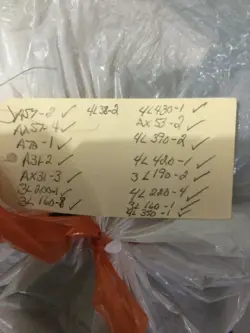 A57-2 4L38-2 4L430-1 ✓
AX57-4 ✓ AX53-2 ✓
A78-1 ✓ 4L390-2 ✓
A31-2 ✓ 4L420-1 ✓
AX31-3 ✓ 3L190-2 ✓
3L200-1 ✓ 4L220-4 ✓
3L160-8 ✓ 3L160-1 ✓
4L350-1 ✓